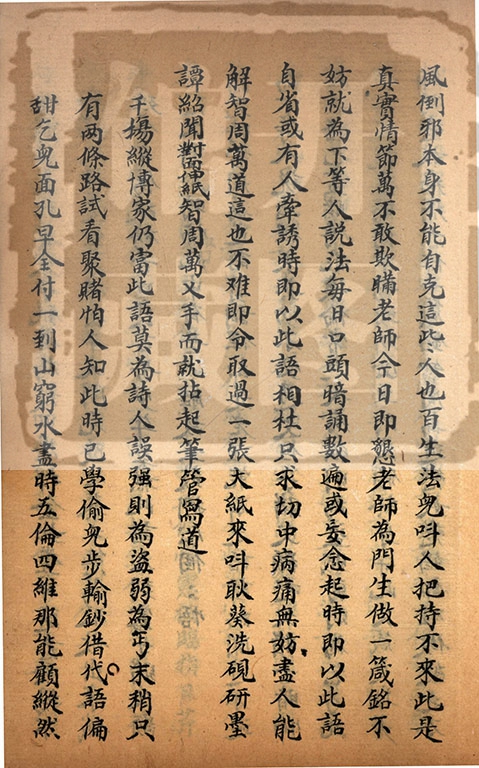 風倒邪本身不能自克這些人也百生法兜呌人把持不來此是
真實情節萬不敢欺瞞老師今日即懇老師為門生做一箴銘不
妨就為下等人説法每日口頭暗誦數遍或妄念起時即以此語
自省或有人牽誘時即以此語相杜只求切中病痛無妨盡人能
解智周萬道這也不难即令取過一張大紙來呌耿葵洗硯研墨
譚紹聞對面伸紙智周萬义手而就拈起筆管寫道
千塲縱博家仍富此語莫為詩人誤强則為盜弱為丐末稍只
有两條路試看聚賭怕人知此時已學偷兜步輸鈔借代語偏
甜乞兜面孔早全付一到山窮水盡時五倫四維那能顧縱然